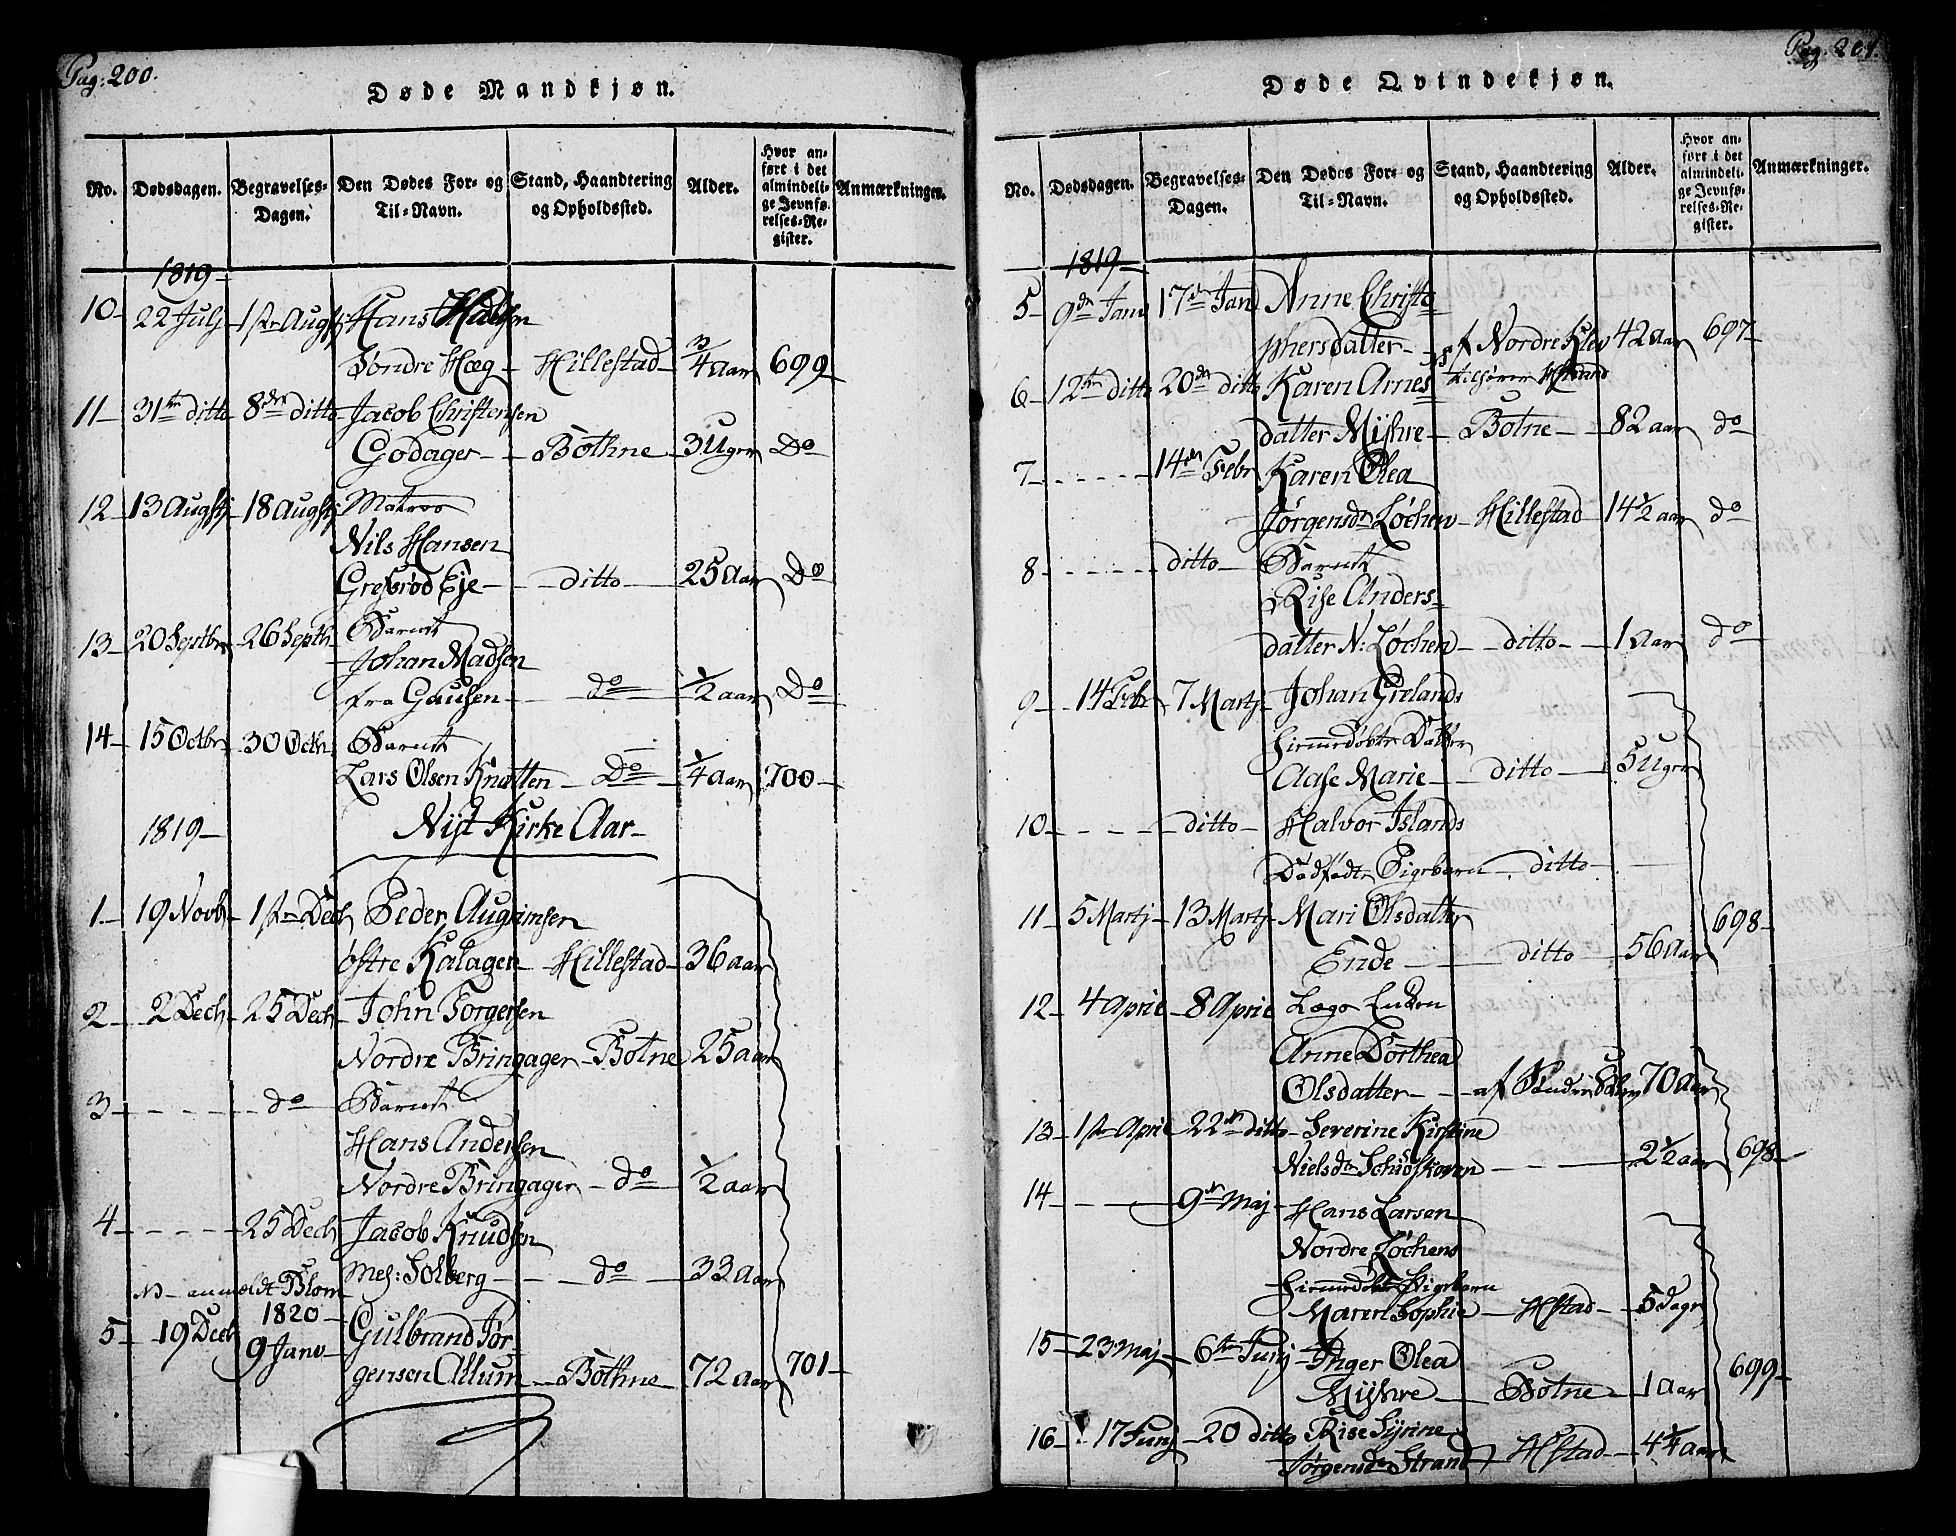 Pag: 200.
Døde Mandkjøn.
No. Dødsdagen. Begravelses-Dagen. Den Dødes For- og Til-Navn. Stand, Haandtering og Opholdssted. Alder. Hvor anført i det almindelige Jevnførelses-Register. Anmærkninger.
1819
10 22 July 1ste Augstj Hans
Søndre Hæg Hillestad 3/4 aar 699
11 31te ditto 8de ditto Jacob Christensen
Godager Bothne 3 Uger Do
12 13 Augstj 18 Augstj Matros
Nils Hansen
Eje ditto 25 Aar Do
13 20 Septbr 26 Septb Barnet
Johan Madsen
fra Gausen do 1/2 aar Do
14 15 Octbr 30 Octb Barnet
Lars Olsen Knatten Do 1/4 Aar 700
1819 Nyt Kirke Aar
1 19 Novb 1ste Decb Peder
østre Kalagen Hillestad 36 aar
2 2 Decb 25 Decb John Torgersen
Nordre Bringager Botne 25 aar
3 do Barnet
Hans Andersen
Nordre Bringager do 1/2 aar
4 25 Decb Jacob Knudsen
Solberg do 33 Aar
anmeldt Blom
1820
5 19 Decb 9 Janv Gulbrand Jør-
gensen Allum Bothne 72 Aar 701
Pag. 201.
Døde Qvindekjøn.
No. Dødsdagen. Begravelses-Dagen. Den Dødes For- og Til-Navn. Stand, Haandtering og Opholdssted. Alder. Hvor anført i det almindelige Jevnførelses-Register. Anmærkninger.
1819
5 9de Janv 17de Jan Anne Christo-
phersdatter af Nordre Klev 42 Aar 697
6 12te ditto 20de ditto Karen Arnes
datter Myhre Botne 82 aar do
7 14de Febr Karen Olea
Jørgensdr Løchen Hillestad 14 1/2 aar do
8 ditto Barnet
Rise Anders-
datter N: Løchen ditto 1 Aar do
9 14 Febr 7 Martj Johan Grelands
hiemmedøbte Datter
Aase Marie ditto 5 Uger
10 ditto Halvor Islands
Dødfødte Pigebarn ditto
11 5 Martj 13 Martj Mari Olsdatter 698
Ende ditto 56 Aar
12 4 April 8 April Lægs Enken
Anne Dorthea
Olsdatter af 70 Aar
13 1ste April 22de ditto Severine Kirstine
Nielsdr 2 1/2 aar 698
14 9de Maj Hans Larsen
Nordre Løchens
hiemmedøbte Pigebarn
Maren Sophie Hstad 5 dage
15 23 Maj 6te Junj Inger Olea
Myhre Botne 1 Aar 699
16 17 Junj 20 ditto Rise Syrine
Jørgensdr Strand Hstad 4 1/4 aar